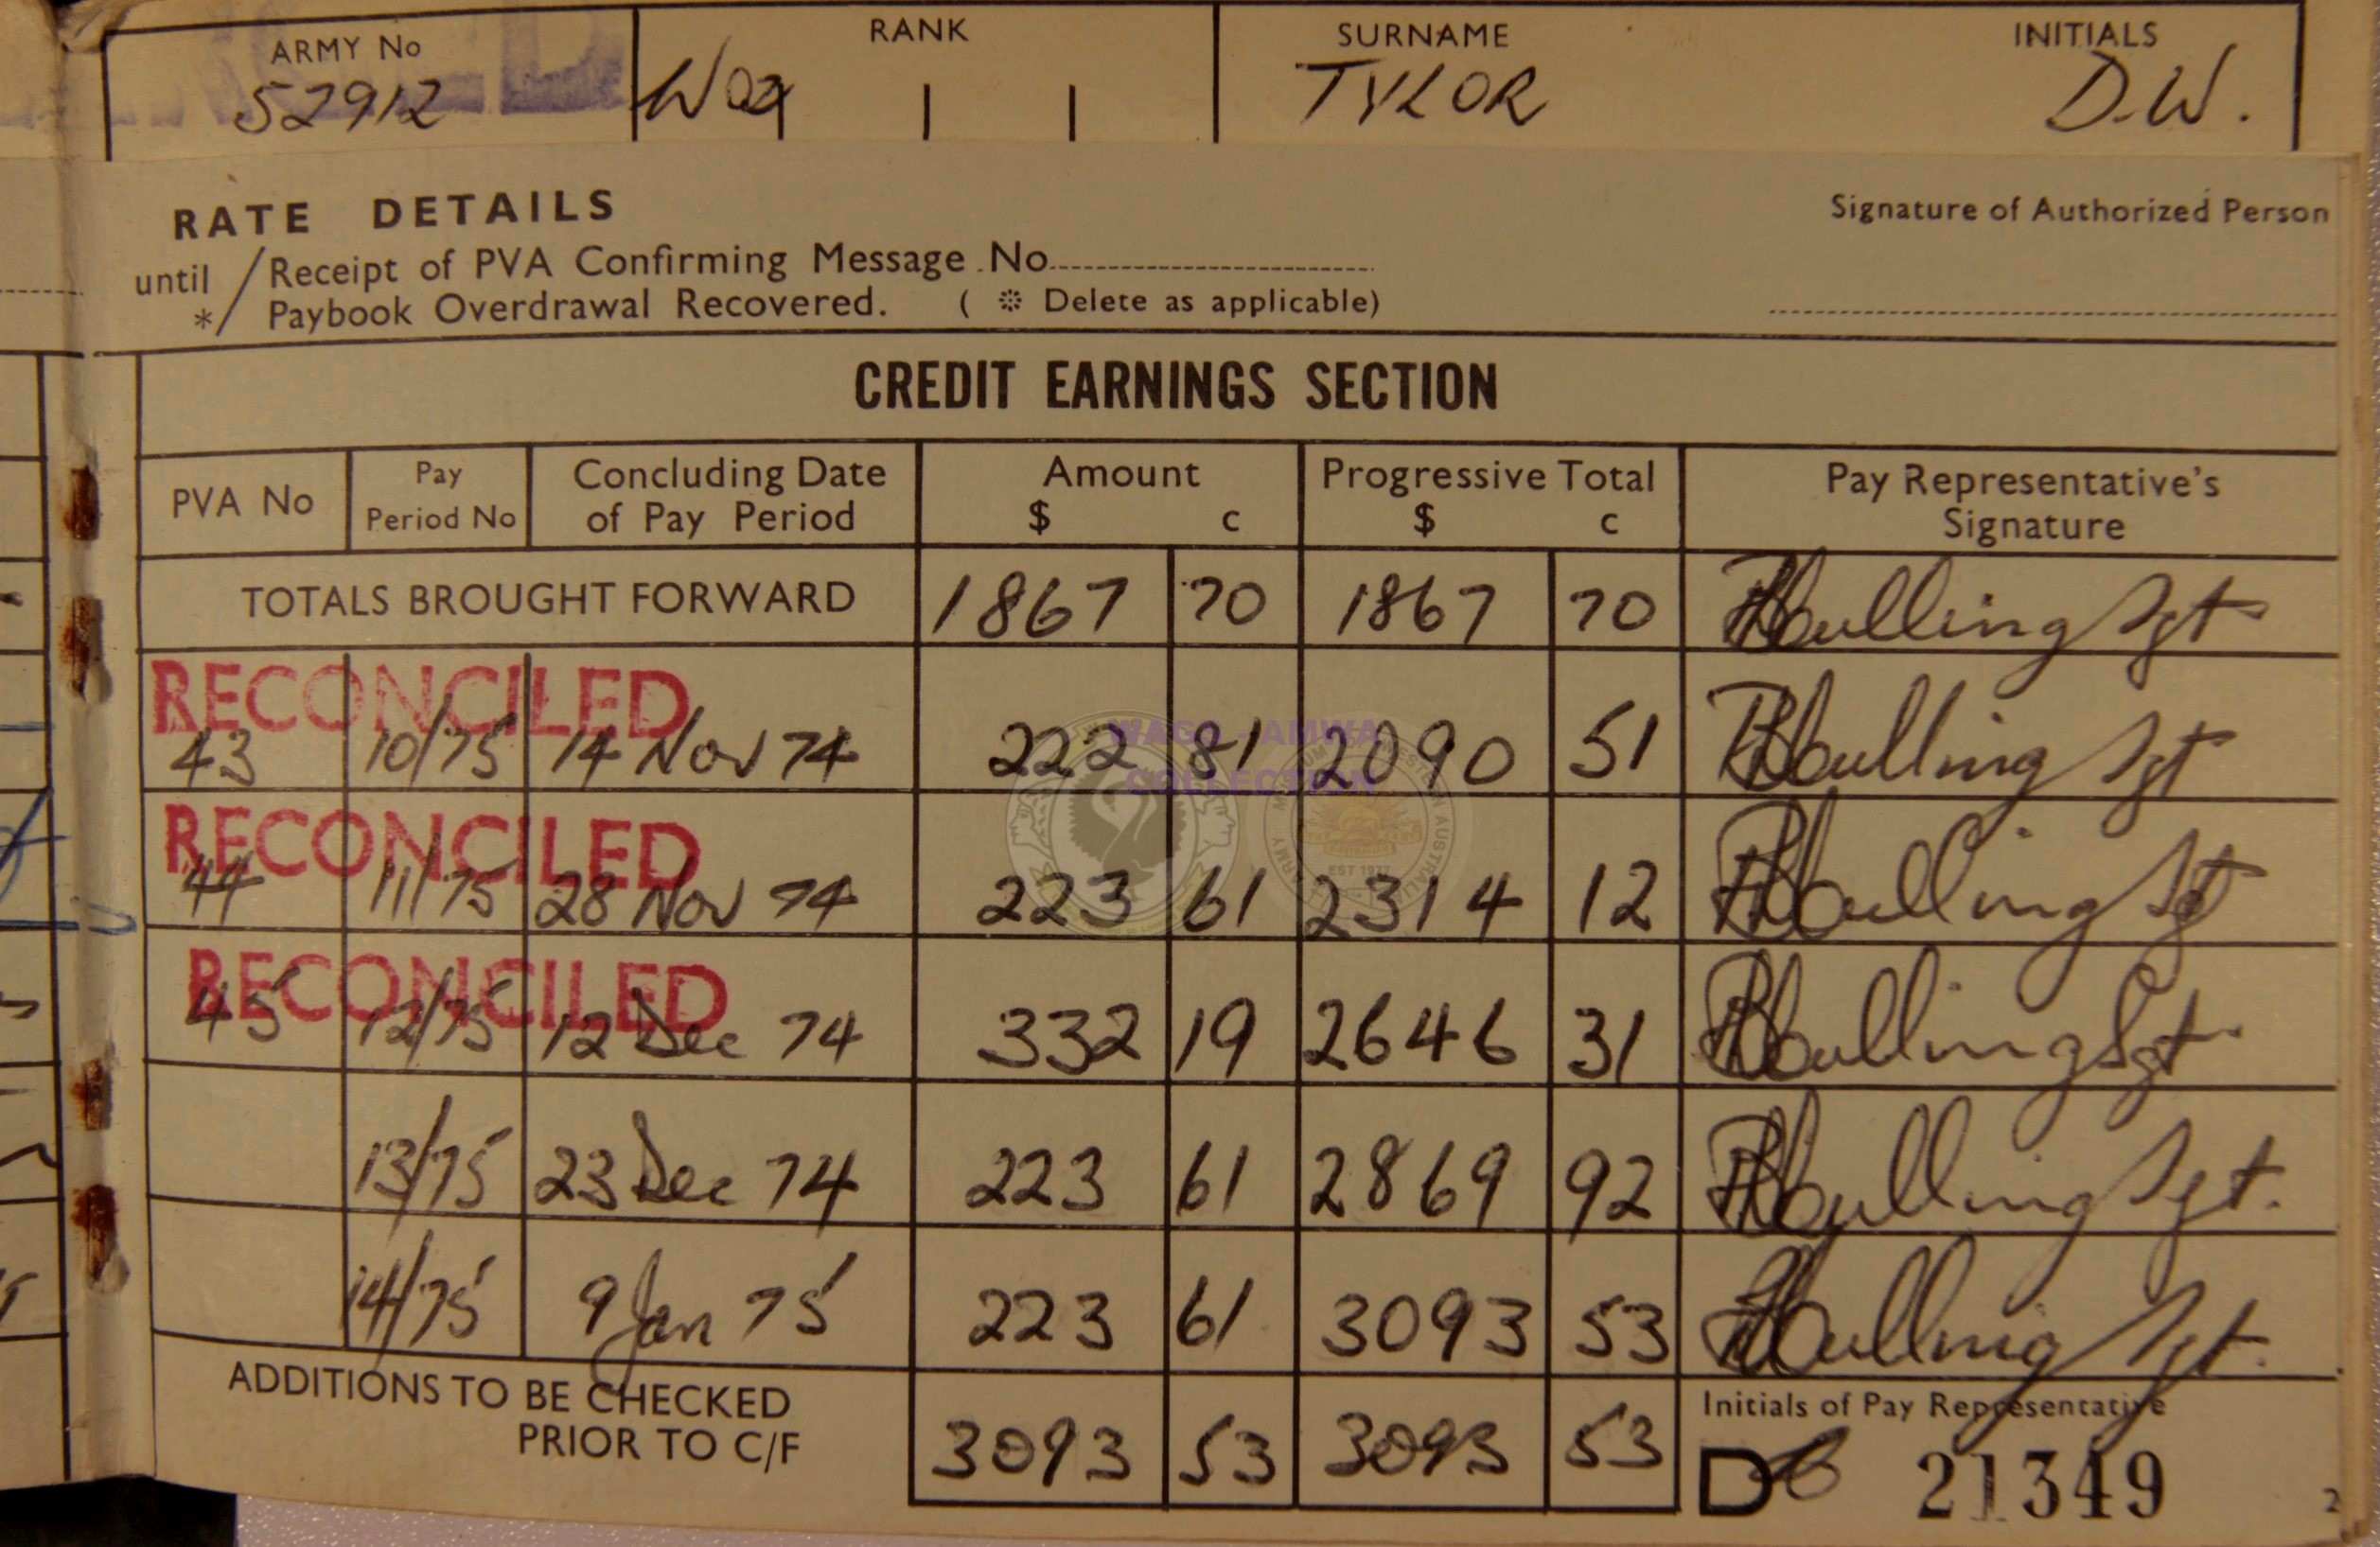 ARMY No RANK SURNAME INITIALS
52912 WO2 TYLOR D.W.
RATE DETAILS
Signature of Authorized Person
until / Receipt of PVA Confirming Message No
*/ Paybook Overdrawal Recovered. ( * Delete as applicable)
CREDIT EARNINGS SECTION
PVA No Pay Period No Concluding Date of Pay Period Amount $ c Progressive Total $ c Pay Representative's Signature
TOTALS BROUGHT FORWARD 1867 70 1867 70 Sgt
RECONCILED
43 10/75 14 Nov 74 222 81 2090 51 Sgt
WAGS - AMWA
COLLECTION
RECONCILED
44 11/75 28 Nov 74 223 61 2314 12 Sgt
EST 1977
RECONCILED
45 12/75 12 Dec 74 332 19 2646 31 Sgt
13/75 23 Dec 74 223 61 2869 92 Sgt.
14/75 9 Jan 75 223 61 3093 53 Sgt.
ADDITIONS TO BE CHECKED
PRIOR TO C/F
3093 53 3093 53
Initials of Pay Representative
D 21349
2